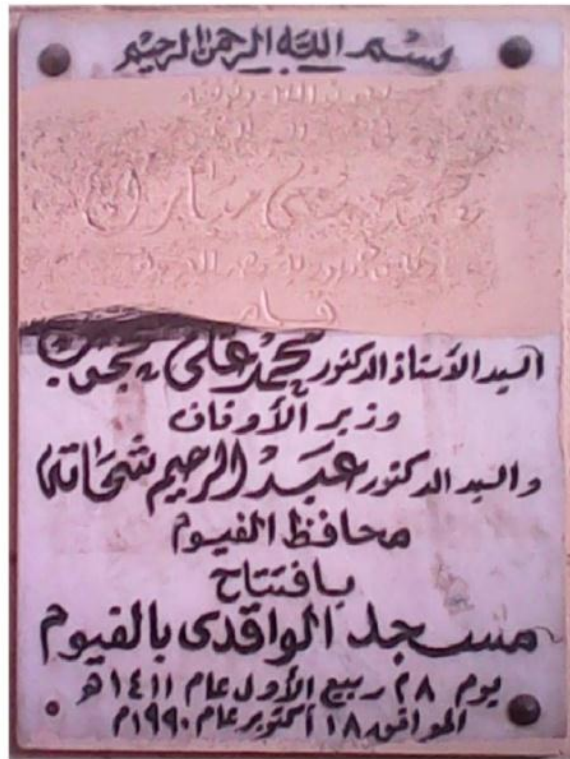 بسم الله الرحمن الرحيم
محمد حسني مبارك
قام
السيد الأستاذ الدكتور محمد علي محجوب
وزير الأوقاف
والسيد الدكتور عبد الرحيم شحاته
محافظ الفيوم
بافتتاح
مسجد الواقدى بالفيوم
يوم ٢٨ ربيع الأول عام ١٤١١ه
الموافق ١٨ أكتوبر عام ١٩٩٠م